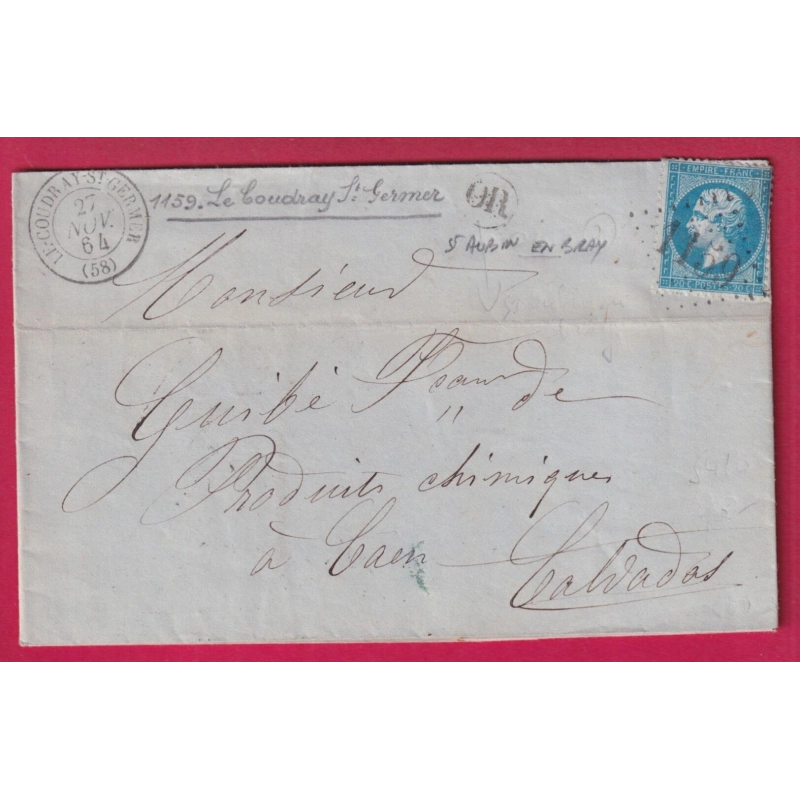 LE-COUDRAY-ST-GERMER
27
NOV.
64
(58)
1159. Le Coudray St Germer
OR
St AUBIN EN BRAY
EMPIRE FRANC
1159
20 C POSTES 20 C
Monsieur
Guibé de
Produits chimiques
à Caen
Calvados